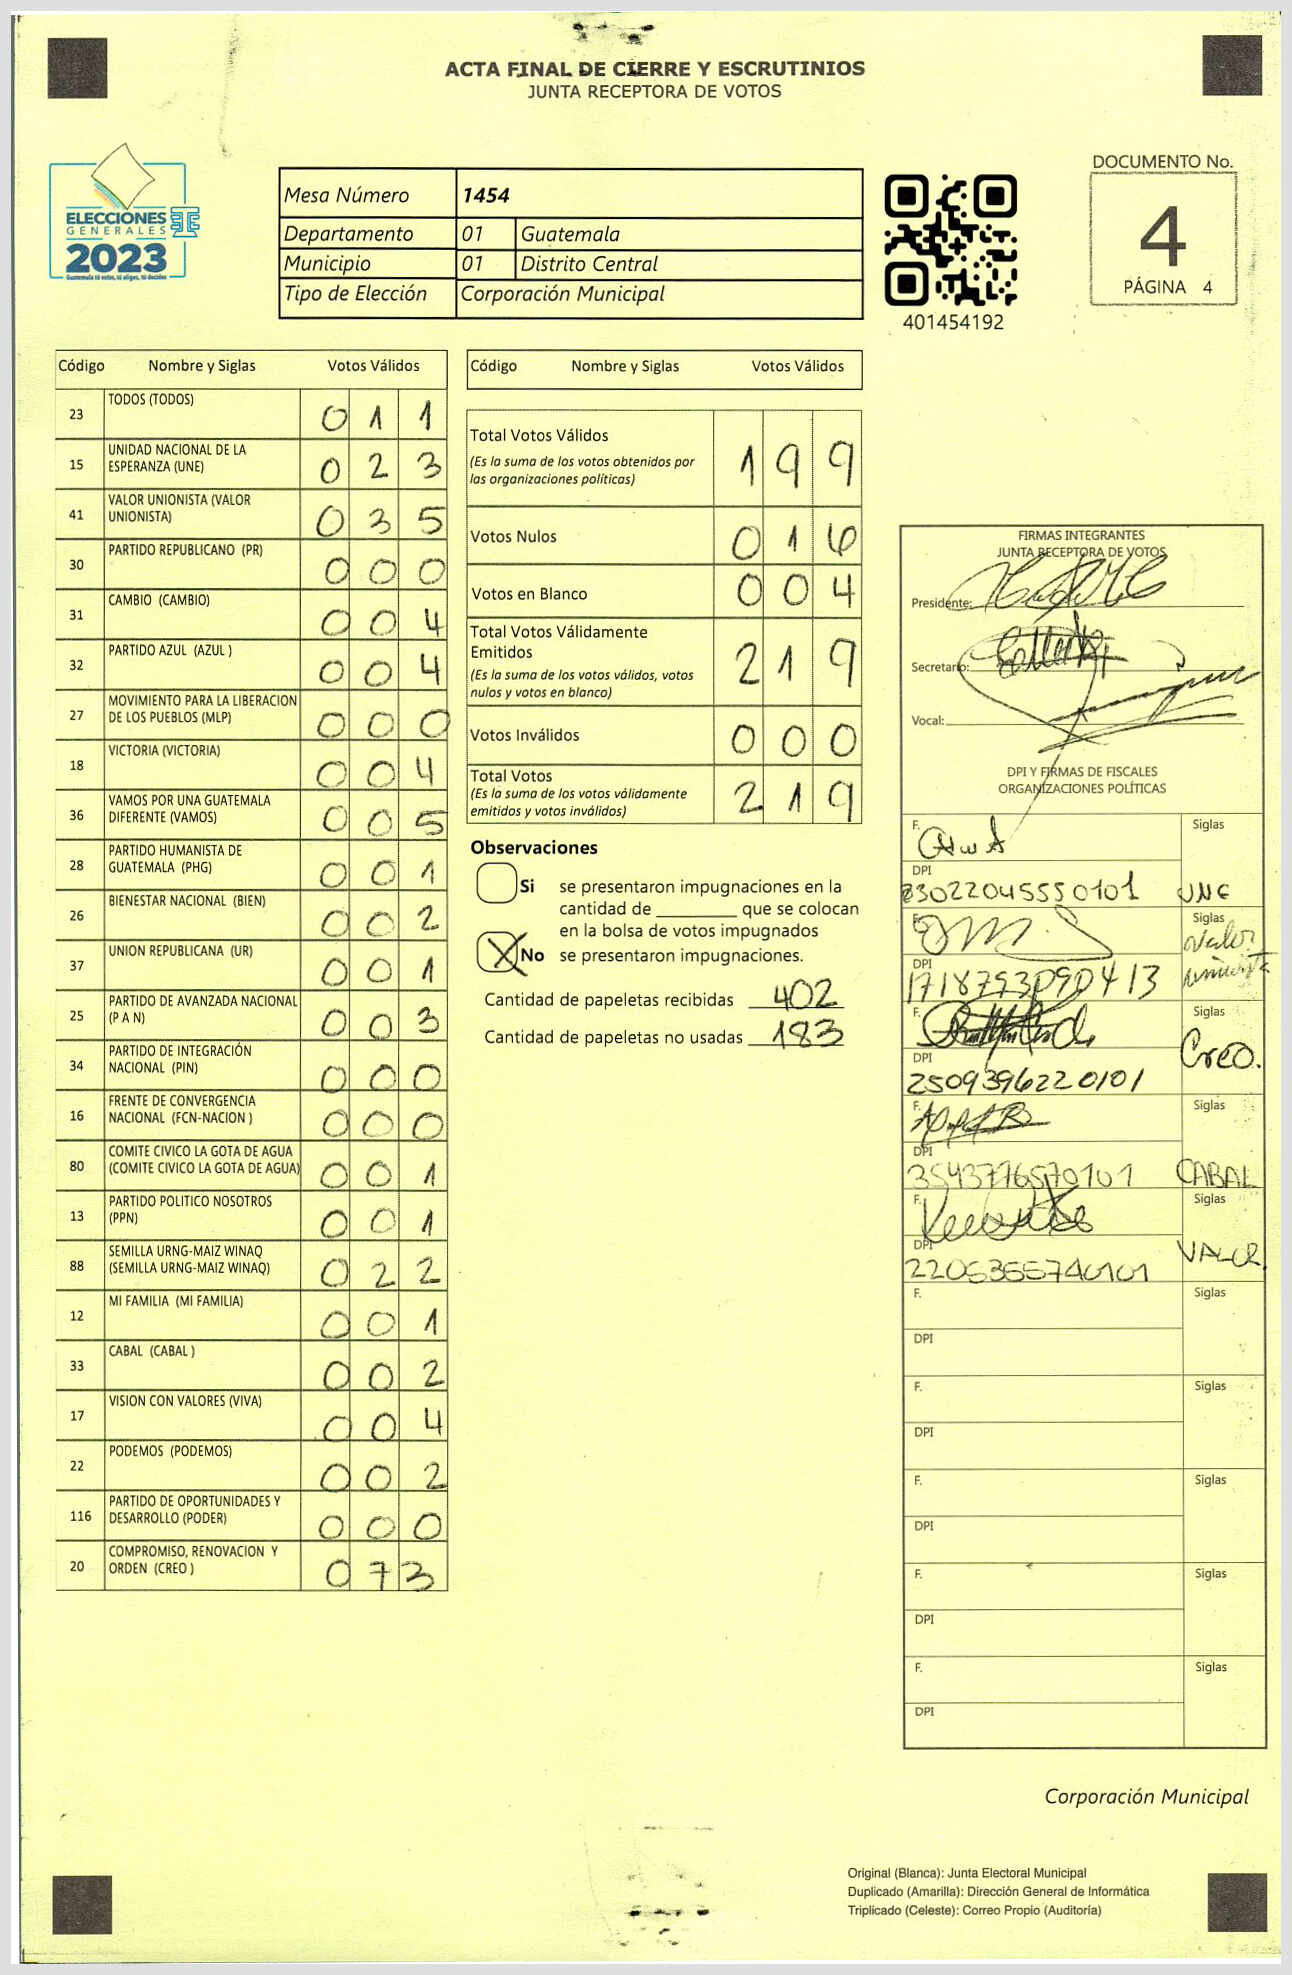 ACTA FINAL DE CIERRE Y ESCRUTINIOS
JUNTA RECEPTORA DE VOTOS
ELECCIONES
GENERALES
2023
Guatemala tú votas, tú eliges, tú decides
Mesa Número 1454
Departamento 01 Guatemala
Municipio 01 Distrito Central
Tipo de Elección Corporación Municipal
401454192
DOCUMENTO No.
4
PÁGINA 4
Código Nombre y Siglas Votos Válidos
23 TODOS (TODOS) 0 1 1
15 UNIDAD NACIONAL DE LA ESPERANZA (UNE) 0 2 3
41 VALOR UNIONISTA (VALOR UNIONISTA) 0 3 5
30 PARTIDO REPUBLICANO (PR) 0 0 0
31 CAMBIO (CAMBIO) 0 0 4
32 PARTIDO AZUL (AZUL ) 0 0 4
27 MOVIMIENTO PARA LA LIBERACION DE LOS PUEBLOS (MLP) 0 0 0
18 VICTORIA (VICTORIA) 0 0 4
36 VAMOS POR UNA GUATEMALA DIFERENTE (VAMOS) 0 0 5
28 PARTIDO HUMANISTA DE GUATEMALA (PHG) 0 0 1
26 BIENESTAR NACIONAL (BIEN) 0 0 2
37 UNION REPUBLICANA (UR) 0 0 1
25 PARTIDO DE AVANZADA NACIONAL (P A N) 0 0 3
34 PARTIDO DE INTEGRACIÓN NACIONAL (PIN) 0 0 0
16 FRENTE DE CONVERGENCIA NACIONAL (FCN-NACION ) 0 0 0
80 COMITE CIVICO LA GOTA DE AGUA (COMITE CIVICO LA GOTA DE AGUA) 0 0 1
13 PARTIDO POLITICO NOSOTROS (PPN) 0 0 1
88 SEMILLA URNG-MAIZ WINAQ (SEMILLA URNG-MAIZ WINAQ) 0 2 2
12 MI FAMILIA (MI FAMILIA) 0 0 1
33 CABAL (CABAL ) 0 0 2
17 VISION CON VALORES (VIVA) 0 0 4
22 PODEMOS (PODEMOS) 0 0 2
116 PARTIDO DE OPORTUNIDADES Y DESARROLLO (PODER) 0 0 0
20 COMPROMISO, RENOVACION Y ORDEN (CREO ) 0 7 3
Código Nombre y Siglas Votos Válidos
Total Votos Válidos 1 9 9
(Es la suma de los votos obtenidos por
las organizaciones políticas)
Votos Nulos 0 1 6
Votos en Blanco 0 0 4
Total Votos Válidamente
Emitidos 2 1 9
(Es la suma de los votos válidos, votos
nulos y votos en blanco)
Votos Inválidos 0 0 0
Total Votos 2 1 9
(Es la suma de los votos válidamente
emitidos y votos inválidos)
Observaciones
Si se presentaron impugnaciones en la
cantidad de ________ que se colocan
en la bolsa de votos impugnados
X No se presentaron impugnaciones.
Cantidad de papeletas recibidas 402
Cantidad de papeletas no usadas 183
FIRMAS INTEGRANTES
JUNTA RECEPTORA DE VOTOS
Presidente:
Secretario:
Vocal:
DPI Y FIRMAS DE FISCALES
ORGANIZACIONES POLÍTICAS
F. Siglas
DPI
23022045550101 UNE
F. Siglas
Valor
unionista
DPI
1718793090413
F. Siglas
Creo.
DPI
2509396220101
F. Siglas
DPI
3543776570101 CABAL
F. Siglas
DPI
VALOR
F. Siglas
DPI
F. Siglas
DPI
F. Siglas
DPI
F. Siglas
DPI
F. Siglas
DPI
Corporación Municipal
Original (Blanca): Junta Electoral Municipal
Duplicado (Amarilla): Dirección General de Informática
Triplicado (Celeste): Correo Propio (Auditoría)